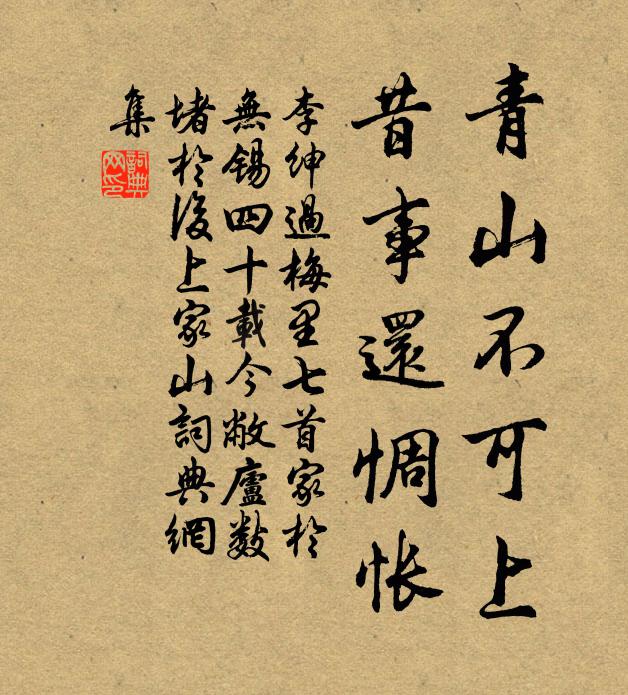 青山不可上
昔事還惆怅
李紳過梅里七首家於
無锡四十載今敝廬數
堵於後上家山詞典網
集
詞典
网印